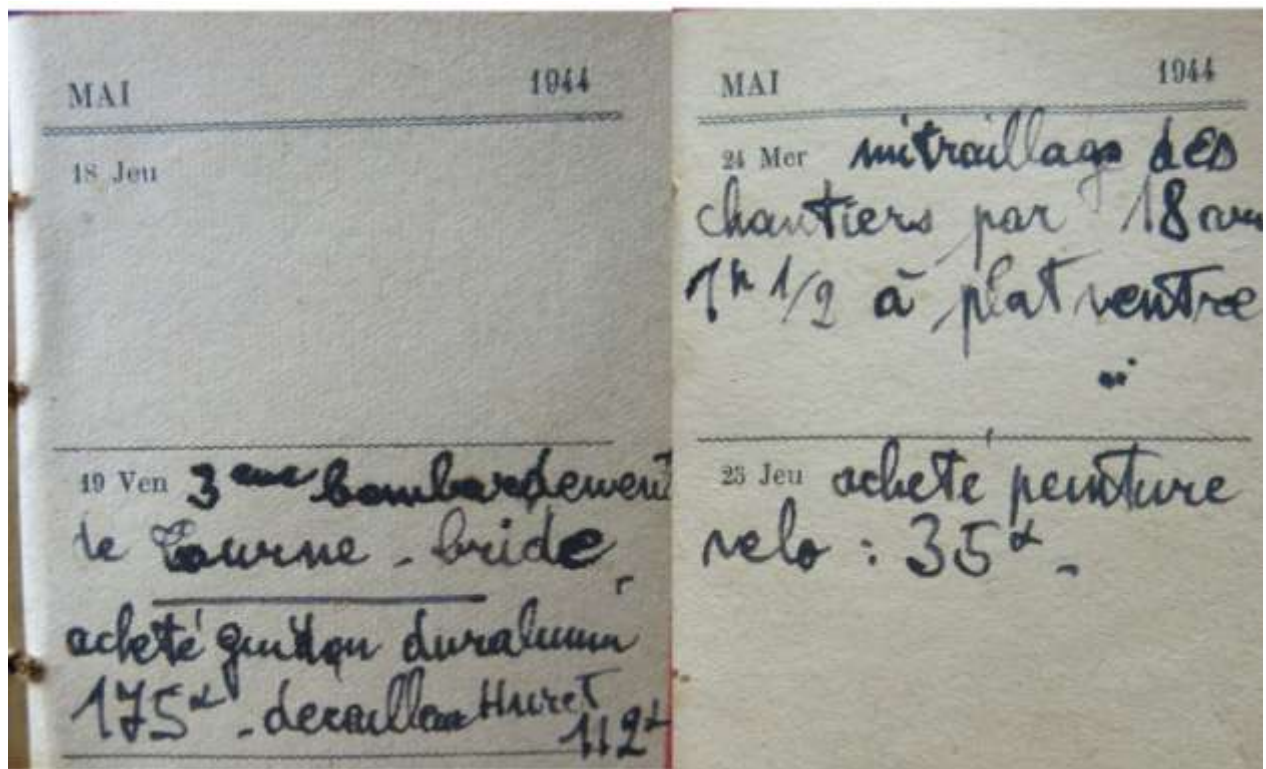 MAI 1944
18 Jeu
19 Ven 3eme bombardement
de Tourne-bride
acheté guidon duralumin
175f - derailleur Huret
112f
MAI 1944
24 Mer mitraillage des
chantiers par 18
1h 1/2 à plat ventre
...
25 Jeu acheté peinture
velo : 35f -